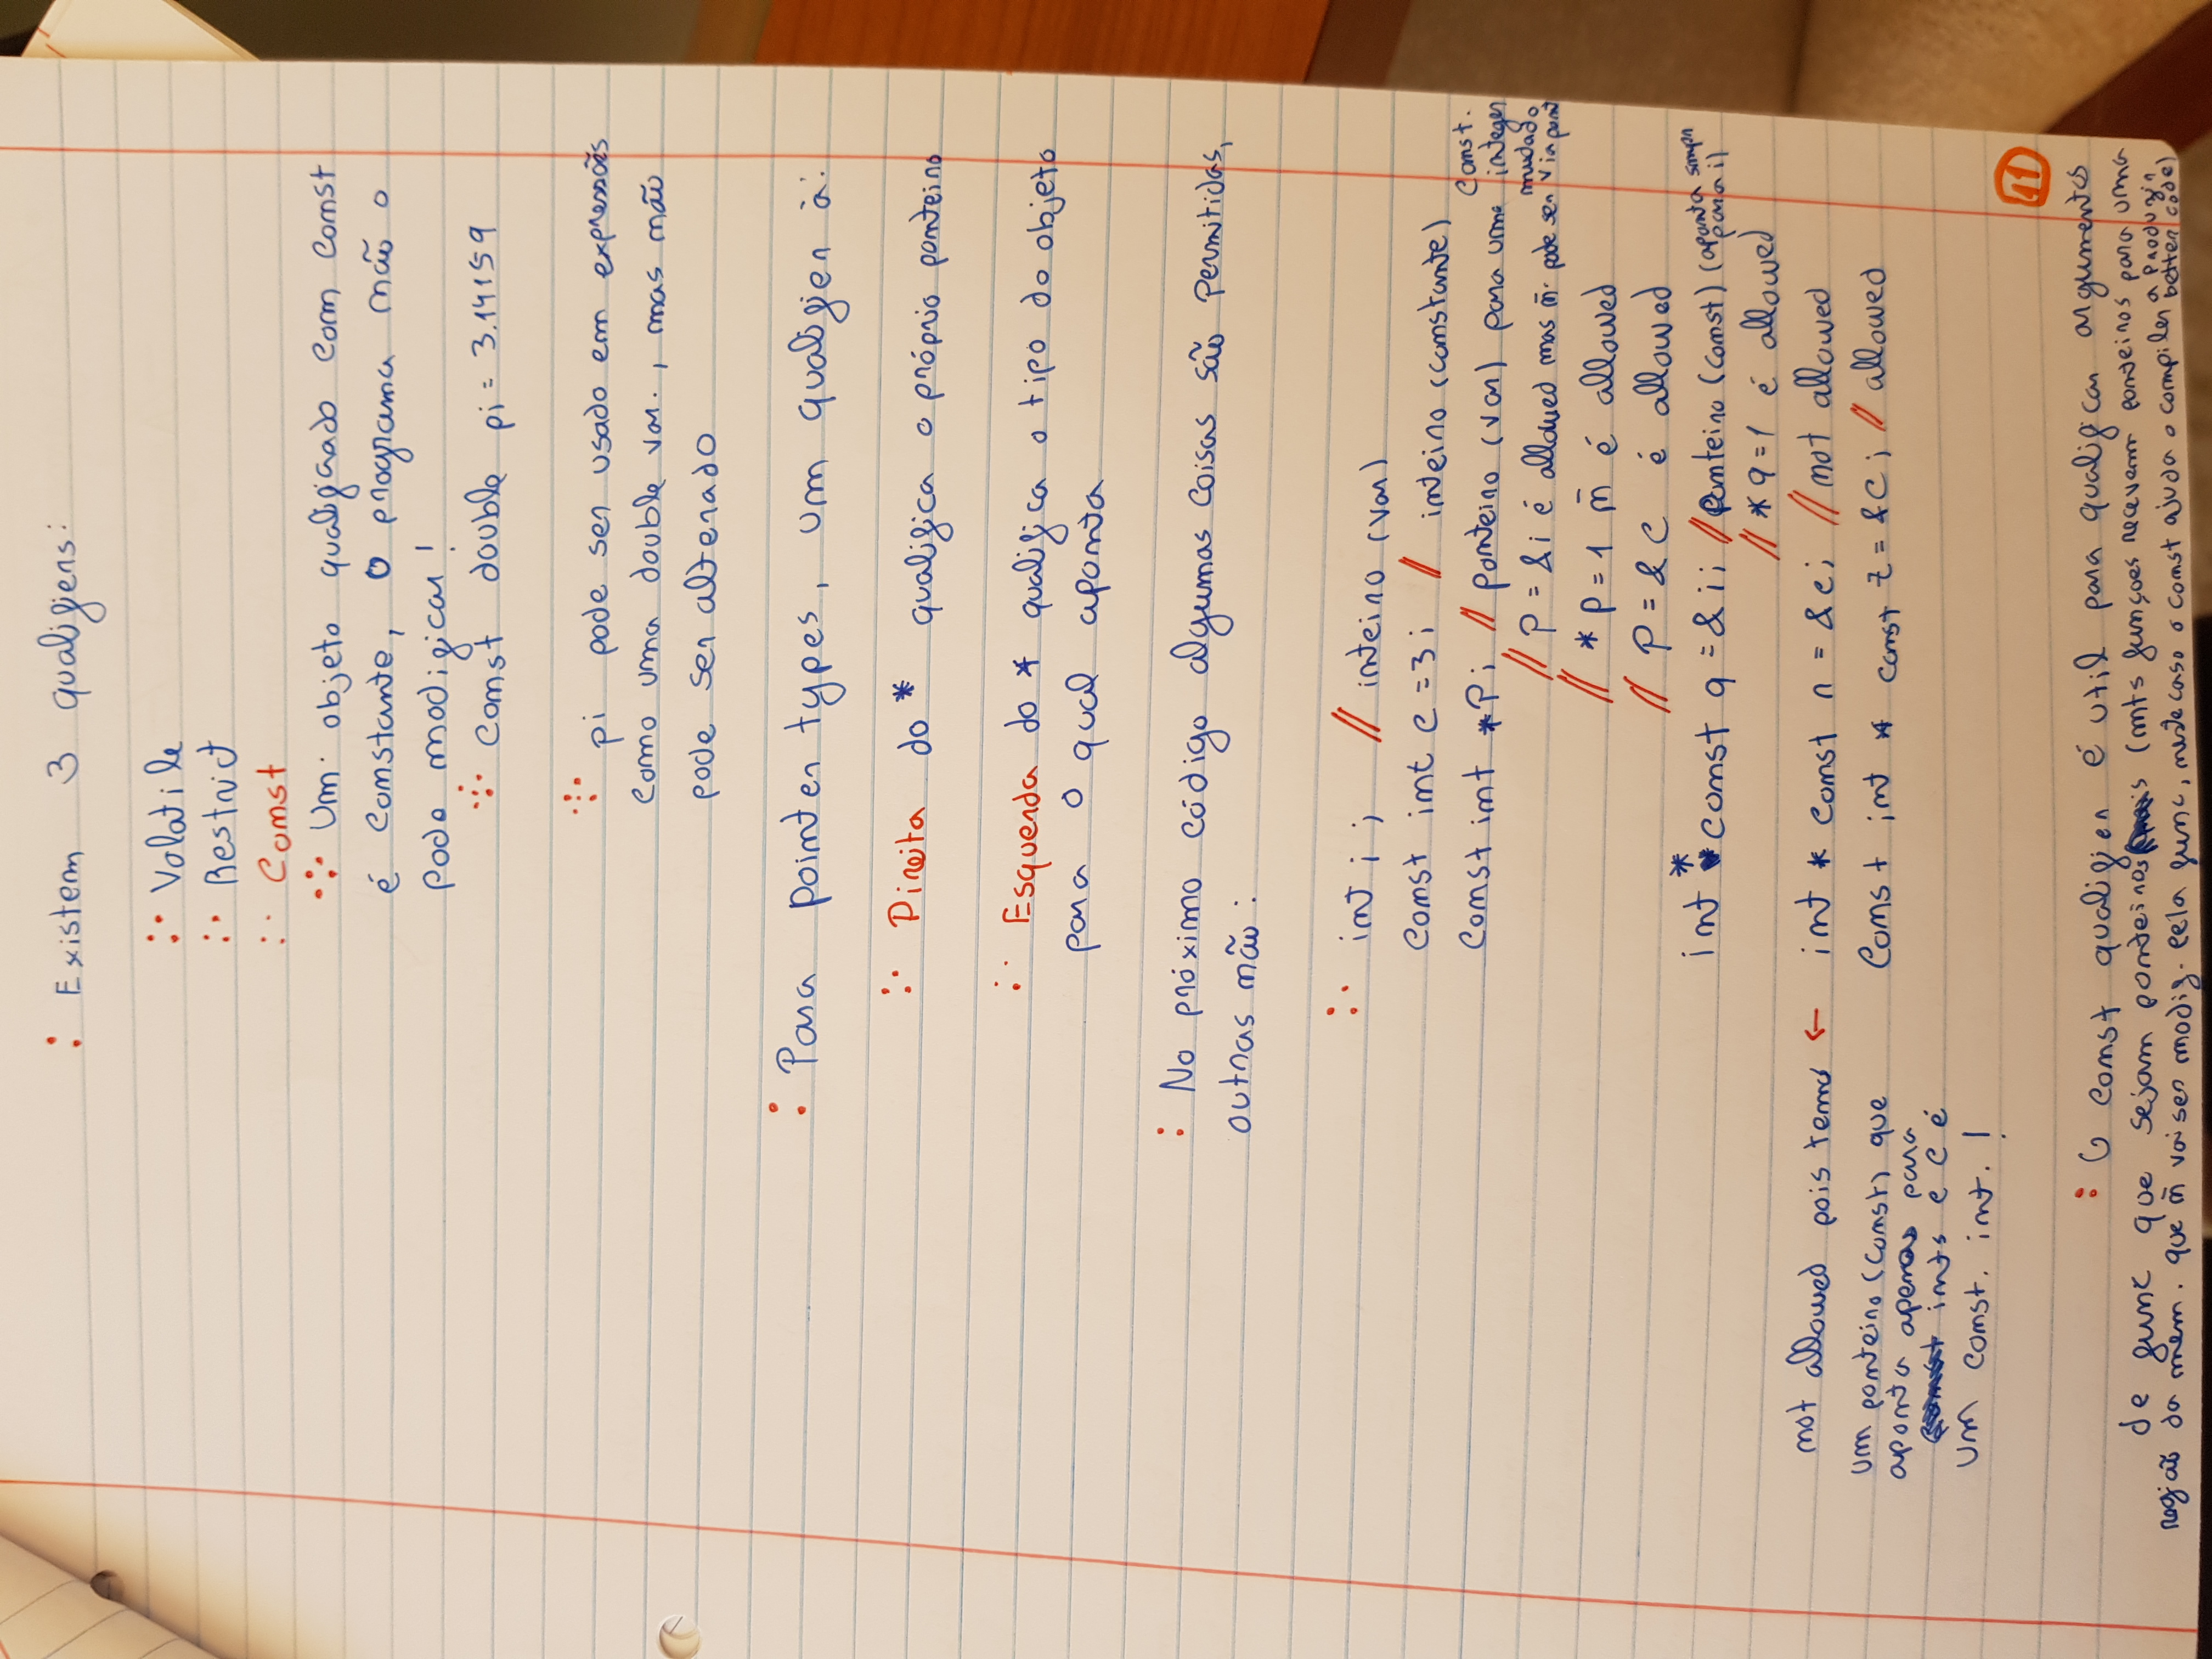 : Existem 3 qualifiers:
:· Volatile
:· Restrict
:· Const
·:· Um objeto qualificado com const
é constante, o programa não o
pode modificar!
·:· Const double pi = 3.14159
·:· pi pode ser usado em expressões
como uma double var., mas não
pode ser alterado
: Para pointer types, um qualifier à:
:· Direita do * qualifica o próprio ponteiro
:· Esquerda do * qualifica o tipo do objeto
para o qual aponta
: No próximo código algumas coisas são permitidas,
outras não:
:· int i; // inteiro (var)
const int c = 3; // inteiro (constante)
const int *p; // ponteiro (var) para uma const. integer
// p = &i é allowed mas ñ. pode ser mudado via pont
// *p = 1 ñ é allowed
// p = &c é allowed
int * const q = &i; // ponteiro (const) (aponta smpr para i)
// *q = 1 é allowed
int * const r = &c; // not allowed
const int * const z = &c; // allowed
not allowed pois temos ←
um ponteiro (const) que
aponta apenas para
ints e c é
um const. int. !
11
: O const qualifier é util para qualificar argumentos
de func que sejam ponteiros (mts funçoes recevem ponteiros para uma
região da mem. que ñ vai ser modif. pela func, neste caso o const ajuda o compiler a produzir better code)